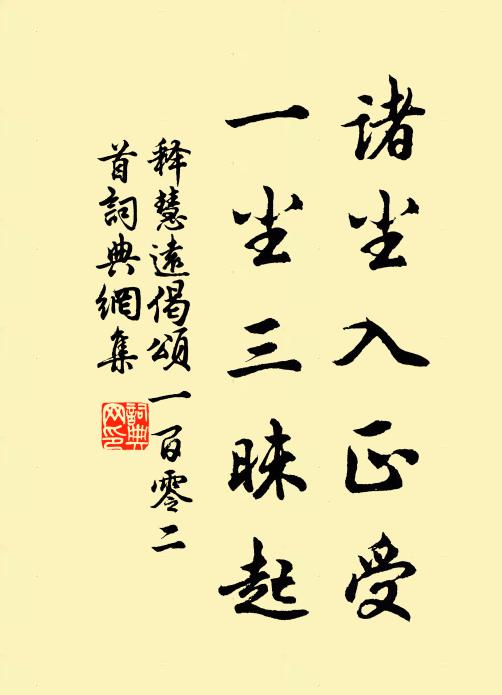 诸尘入正受
一尘三昧起
释慧遠偈頌一百零二
首詞典網集
詞典
网印